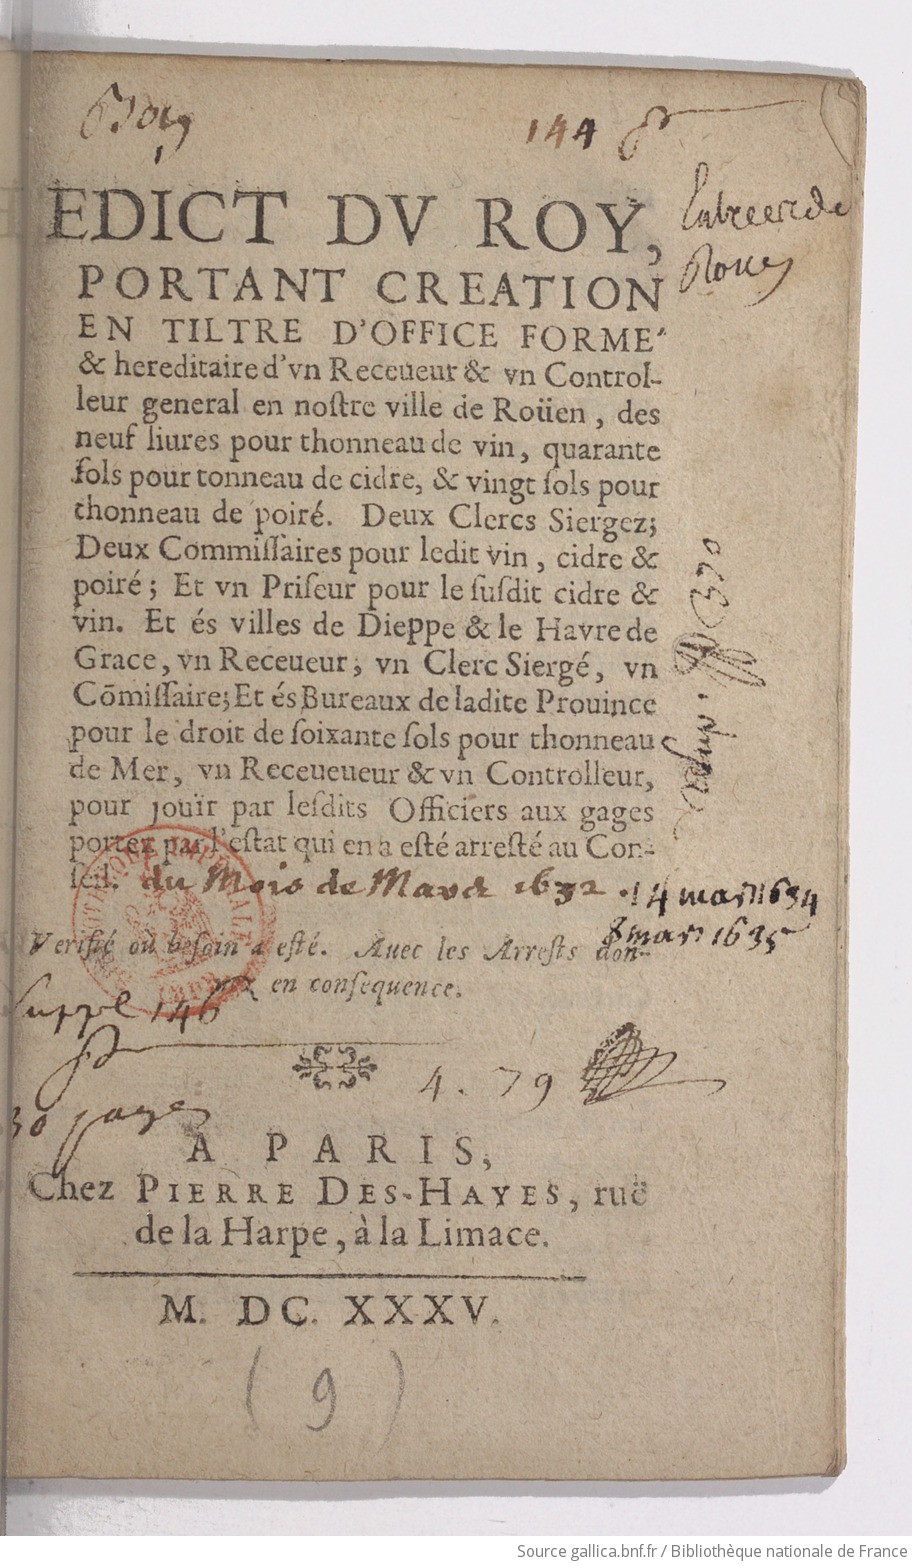 144
EDICT DV ROY,
PORTANT CREATION
EN TILTRE D'OFFICE FORME'
& hereditaire d'vn Receueur & vn Control-
leur general en noſtre ville de Roüen, des
neuf liures pour thonneau de vin, quarante
ſols pour tonneau de cidre, & vingt ſols pour
thonneau de poiré. Deux Clercs Siergez;
Deux Commiſſaires pour ledit vin, cidre &
poiré; Et vn Priſeur pour le ſuſdit cidre &
vin. Et és villes de Dieppe & le Havre de
Grace, vn Receueur; vn Clerc Siergé, vn
Cōmiſſaire; Et és Bureaux de ladite Prouince
pour le droit de ſoixante ſols pour thonneau
de Mer, vn Receueueur & vn Controlleur,
pour jouïr par leſdits Officiers aux gages
portez par l'eſtat qui en a eſté arreſté au Con-
ſeil. du Mois de Mard 1632. 14 mars 1634
8 mars 1635
Verifié où beſoin a eſté. Auec les Arreſts don-
nez en conſequence.
Suppl 146
4. 79
30 pages
A PARIS,
Chez PIERRE DES-HAYES, ruë
de la Harpe, à la Limace.
M. DC. XXXV.
(9)
Source gallica.bnf.fr / Bibliothèque nationale de France